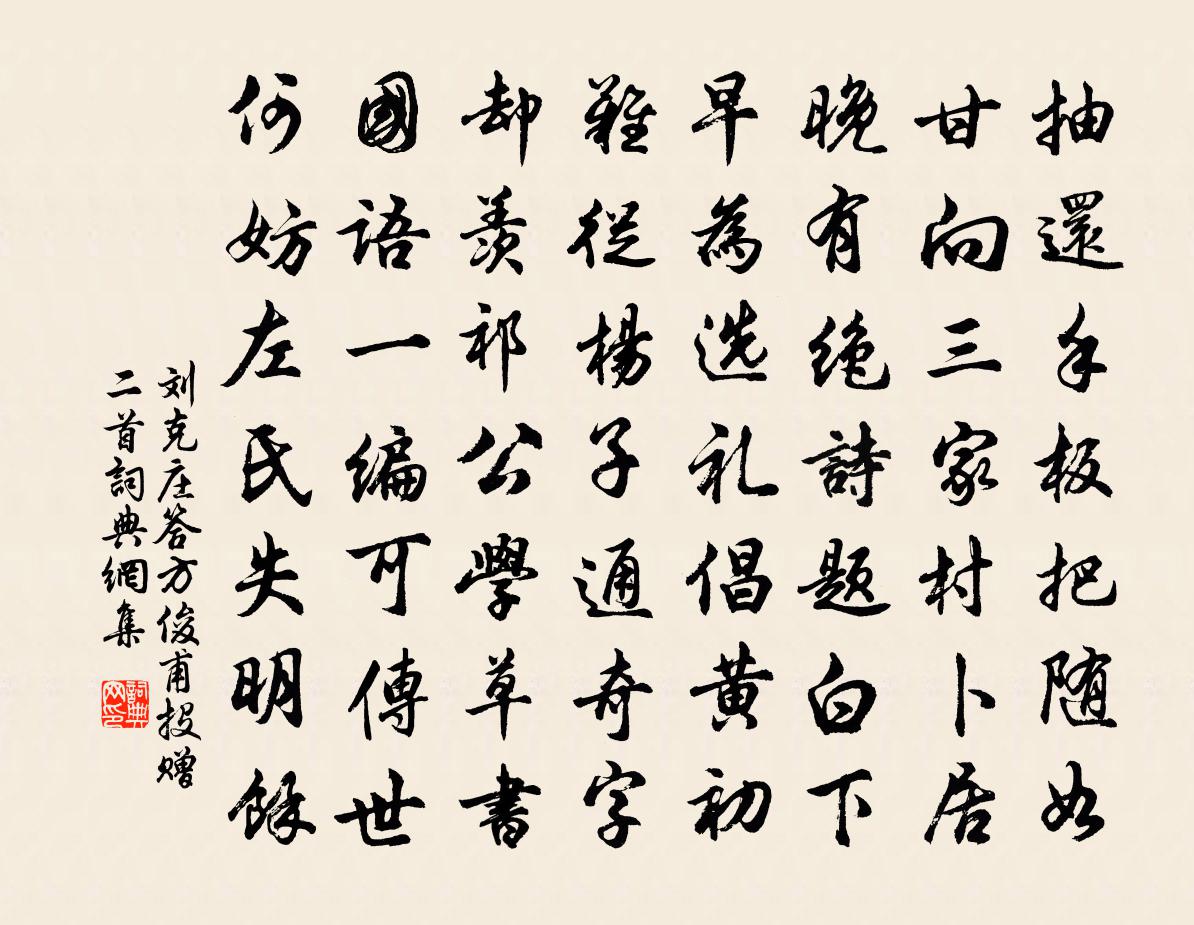 抽還手板把随如
甘向三家村卜居
晚有绝詩题白下
早為选礼倡黄初
難從楊子通奇字
却羨祁公學草書
國語一编可傳世
何妨左氏失明餘
刘克庄答方俊甫投赠
二首詞典網集
詞典
网印